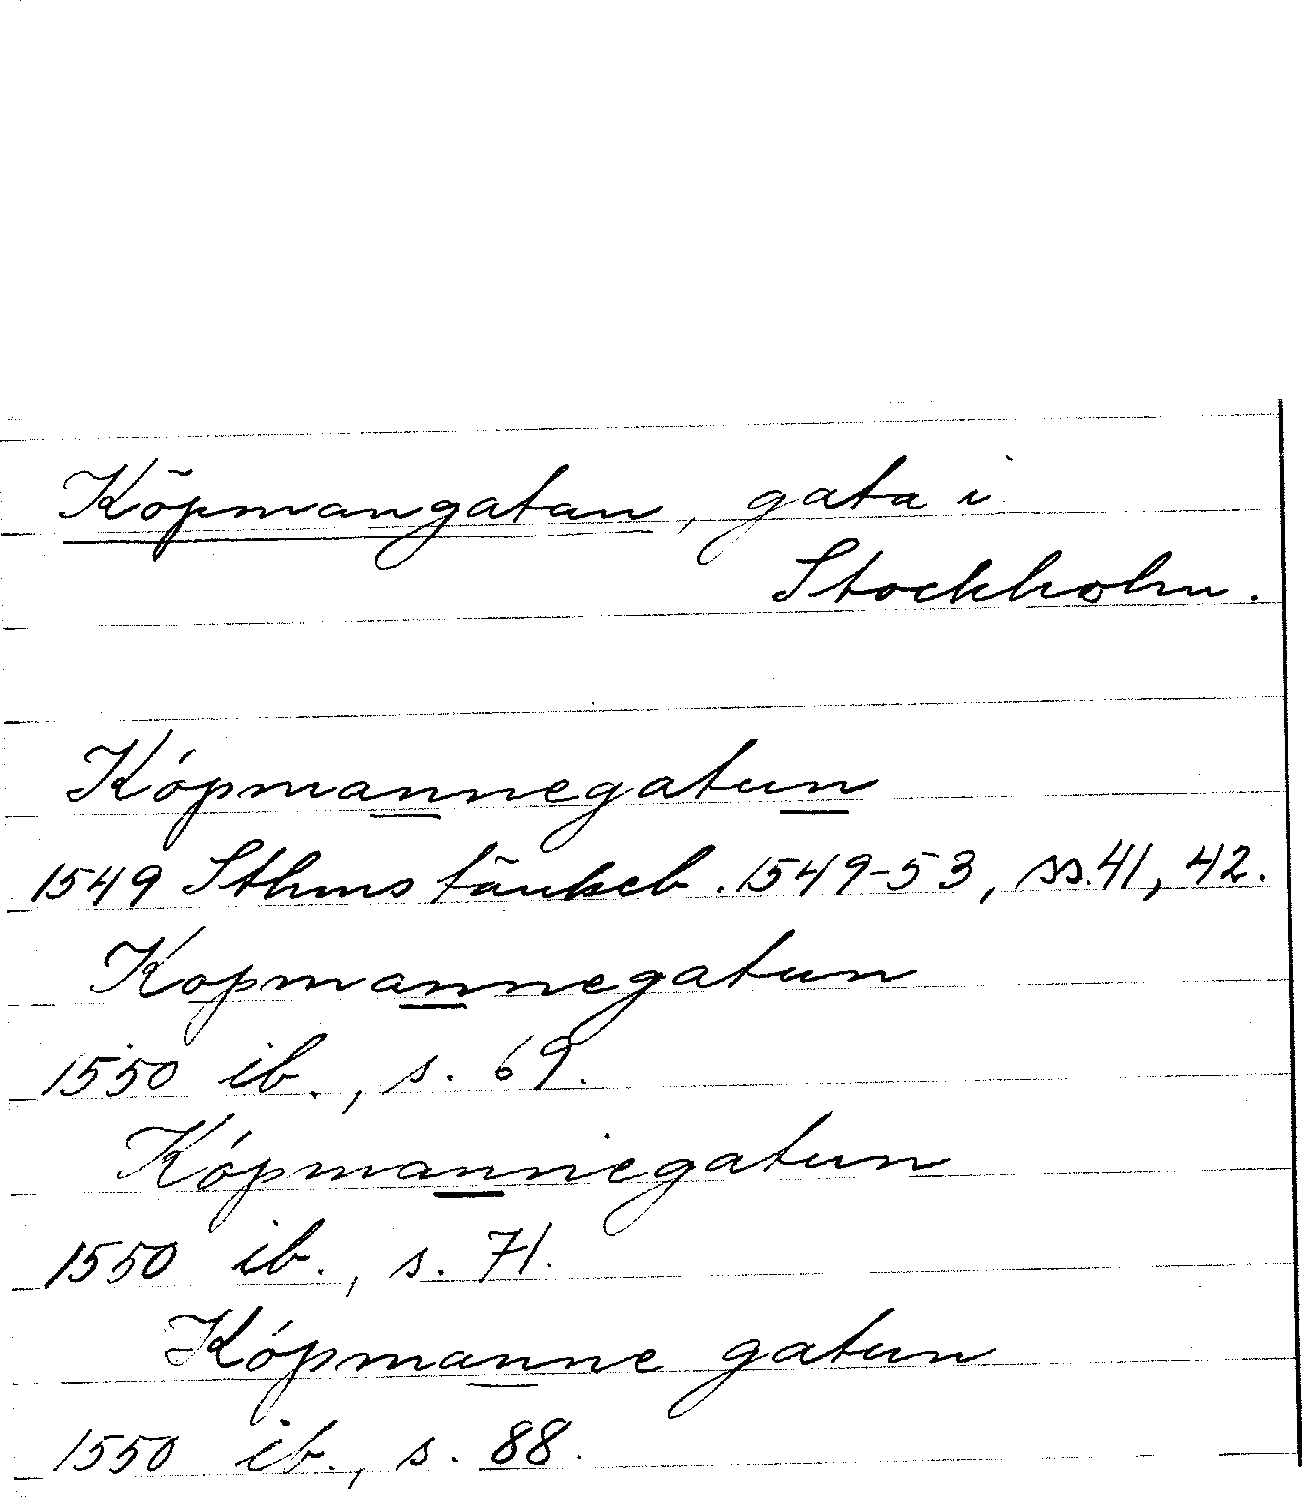 Köpmangatan, gata i
Stockholm.
Kópmannegatun
1549 Sthms tänkeb. 1549-53, ss. 41, 42.
Kopmannegatun
1550 ib., s. 69.
Kópmanniegatun
1550 ib., s. 71.
Kópmanne gatun
1550 ib., s. 88.